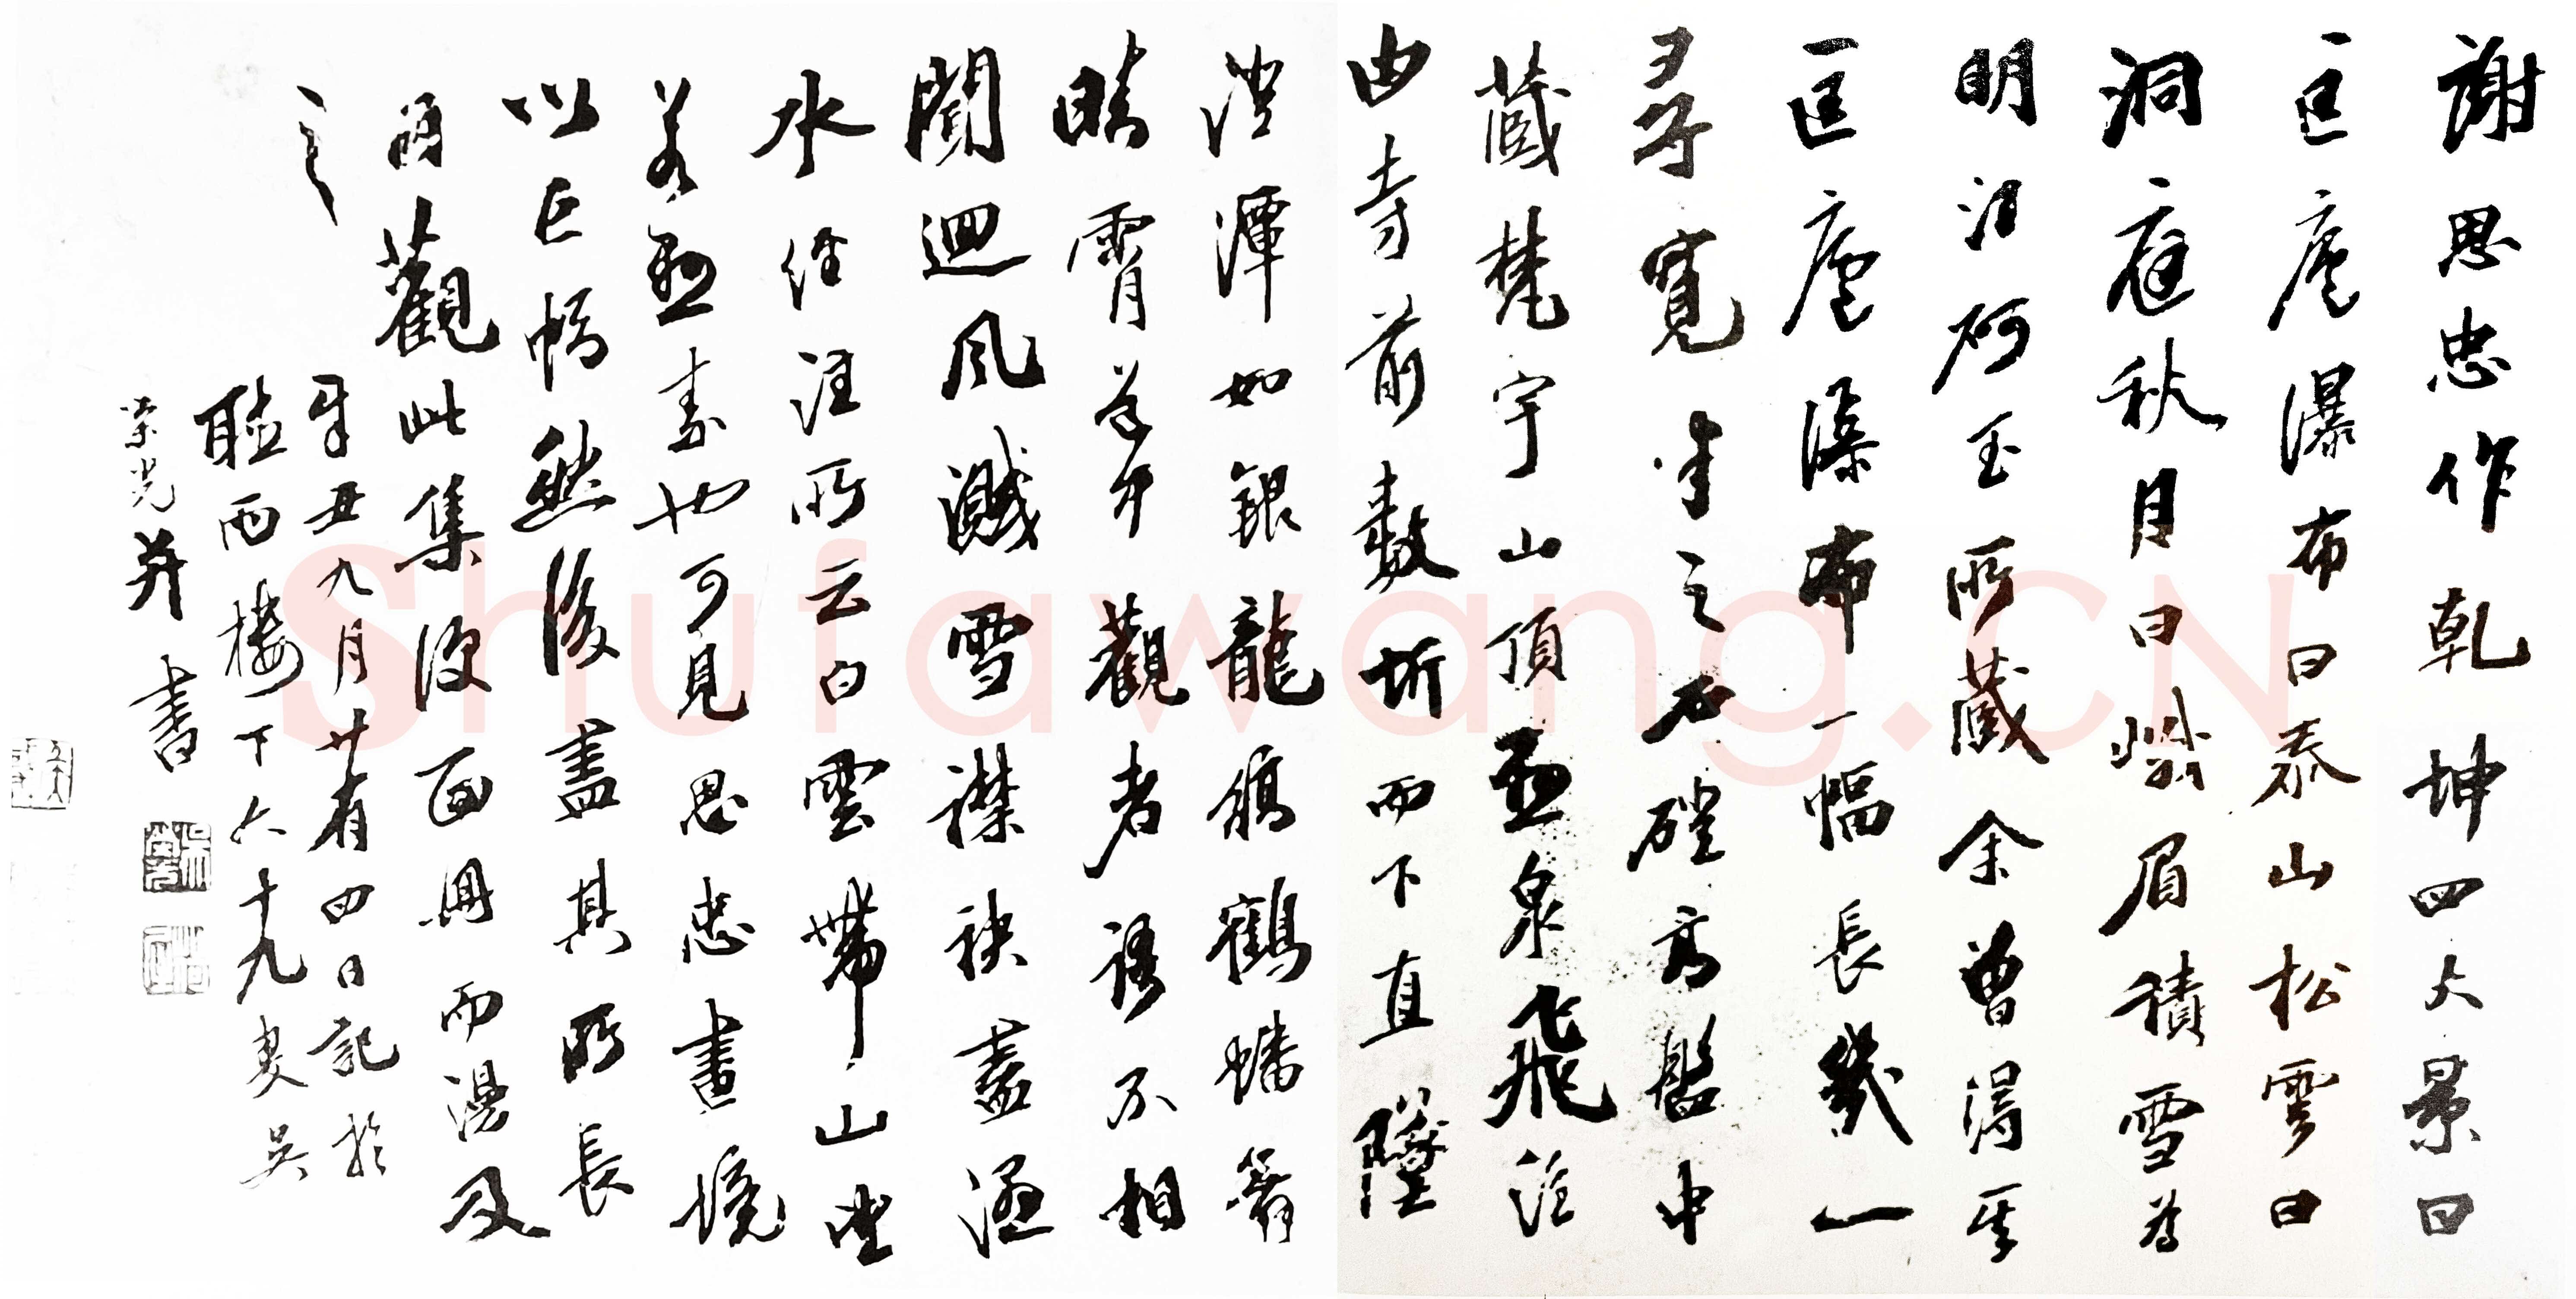 謝思忠作乾坤四大景曰
匡廬瀑布曰泰山松雲曰
洞庭秋月曰峨眉積雪為
明汪砢玉所藏余曾得其
匡廬瀑布一幅長幾一
尋寬半之石磴高盤中
藏梵宇山頂懸泉飛注
由寺前數圻而下直墜
澄潭如銀龍鶴蟠
晴霄尊中觀者語不相
聞迴風濺雪襟袂盡溼
水經注所云白雲帶山望
若懸素也可見思忠畫境
以巨幅然後盡其所長
再觀此集復函冊而漫及
之
辛丑九月廿有四日記於
聽雨樓下六十九叟吳
榮光并書
吳榮光
Shufawang.CN